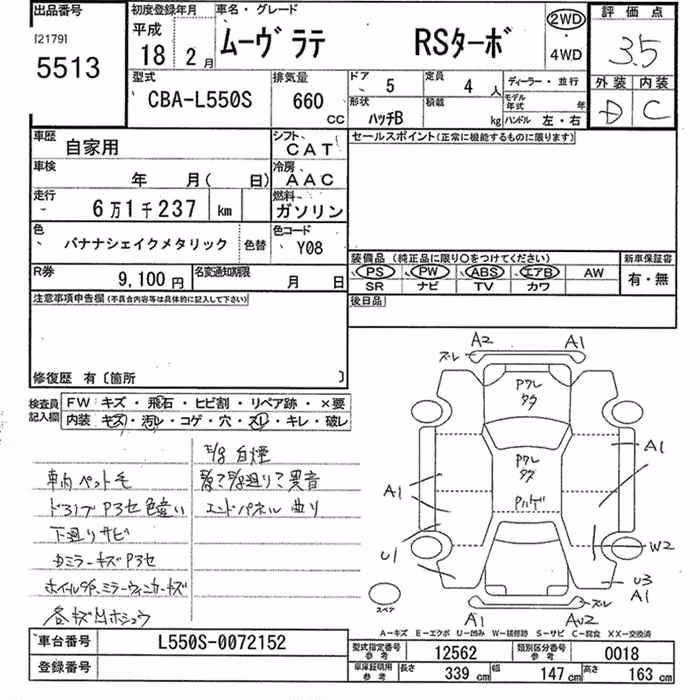 出品番号 初度登録年月 車名・グレード 2WD 評価点
[2179] 平成 ムーヴ ラテ RSターボ ・ 3.5
5513 18 2月 4WD
型式 排気量 ドア 5 定員 4人 ディーラー・並行 外装 内装
CBA-L550S 660 CC 形状 ハッチB 積載 kg モデル年式 年 D C
ハンドル 左・右
車歴 自家用 シフト CAT セールスポイント(正常に機能するものに限ります)
車検 年 月( 日) 冷房 AAC
走行 6万1千237 km 燃料 ガソリン
色 バナナシェイクメタリック 色替 色コード Y08
装備品 (純正品に限り○をつけてください) 新車保証書
PS PW ABS エアB AW 有・無
SR ナビ TV カワ
R券 9,100円 名変通知期限 月 日
後日品
注意事項申告欄 (不具合内容等は具体的に記入して下さい)
修復歴 有〔箇所 〕
検査員記入欄 FW キズ・飛石・ヒビ割・リペア跡・×要
内装 キズ・汚レ・コゲ・穴・スレ・キレ・破レ
E/g 白煙
車内 ペット毛
色違い
エンドパネル 曲り
下廻りサビ
各キズ
A2 A1
ズレ
A1
A1
U1
W2
U3
A1
ズレ
A1 AU2
スペア
A-キズ E-エクボ U-凹み W-補修跡 S-サビ C-腐食 XX-交換済
車台番号 L550S-0072152 型式指定番号 参考 12562 類別区分番号 参考 0018
登録番号 車庫証明用 参考 長さ 339 cm 幅 147 cm 高さ 163 cm